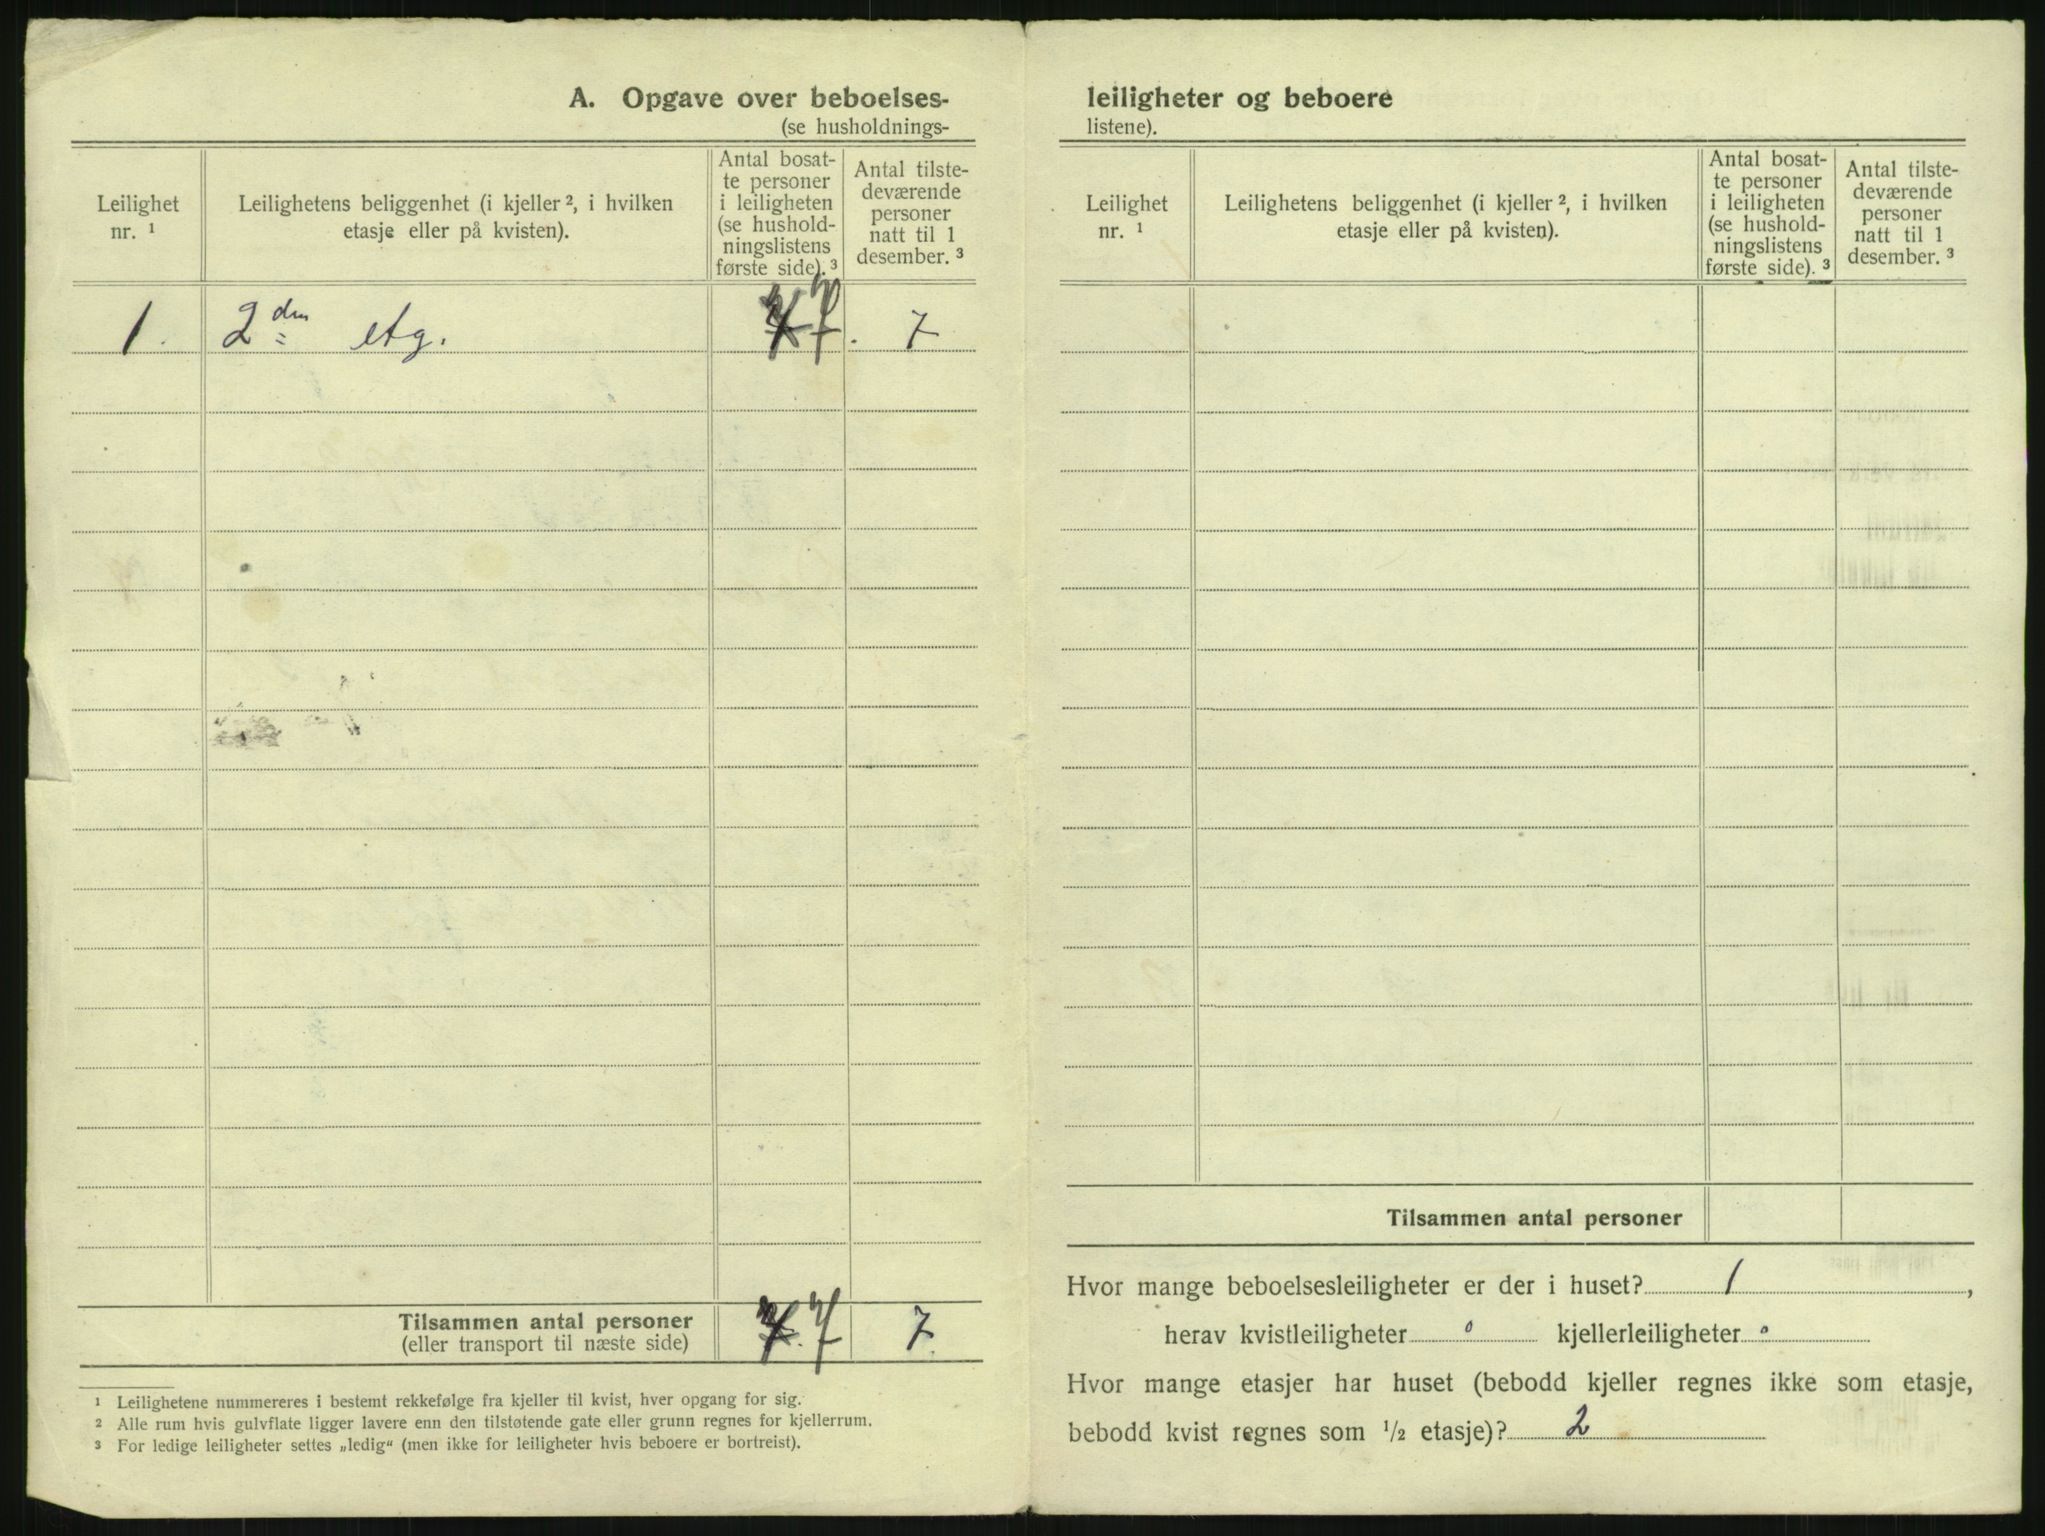 A. Opgave over beboelses-
(se husholdnings-
Leilighet nr. ¹
Leilighetens beliggenhet (i kjeller ², i hvilken
etasje eller på kvisten).
Antal bosat-
te personer
i leiligheten
(se hushold-
ningslistens
første side). ³
Antal tilste-
deværende
personer
natt til 1
desember. ³
1. 2den etg. 7 7
Tilsammen antal personer 7 7
(eller transport til næste side)
¹ Leilighetene nummereres i bestemt rekkefølge fra kjeller til kvist, hver opgang for sig.
² Alle rum hvis gulvflate ligger lavere enn den tilstøtende gate eller grunn regnes for kjellerrum.
³ For ledige leiligheter settes „ledig“ (men ikke for leiligheter hvis beboere er bortreist).
leiligheter og beboere
listene).
Leilighet nr. ¹
Leilighetens beliggenhet (i kjeller ², i hvilken
etasje eller på kvisten).
Antal bosat-
te personer
i leiligheten
(se hushold-
ningslistens
første side). ³
Antal tilste-
deværende
personer
natt til 1
desember. ³
Tilsammen antal personer
Hvor mange beboelsesleiligheter er der i huset? 1,
herav kvistleiligheter 0 kjellerleiligheter 0
Hvor mange etasjer har huset (bebodd kjeller regnes ikke som etasje,
bebodd kvist regnes som ½ etasje)? 2